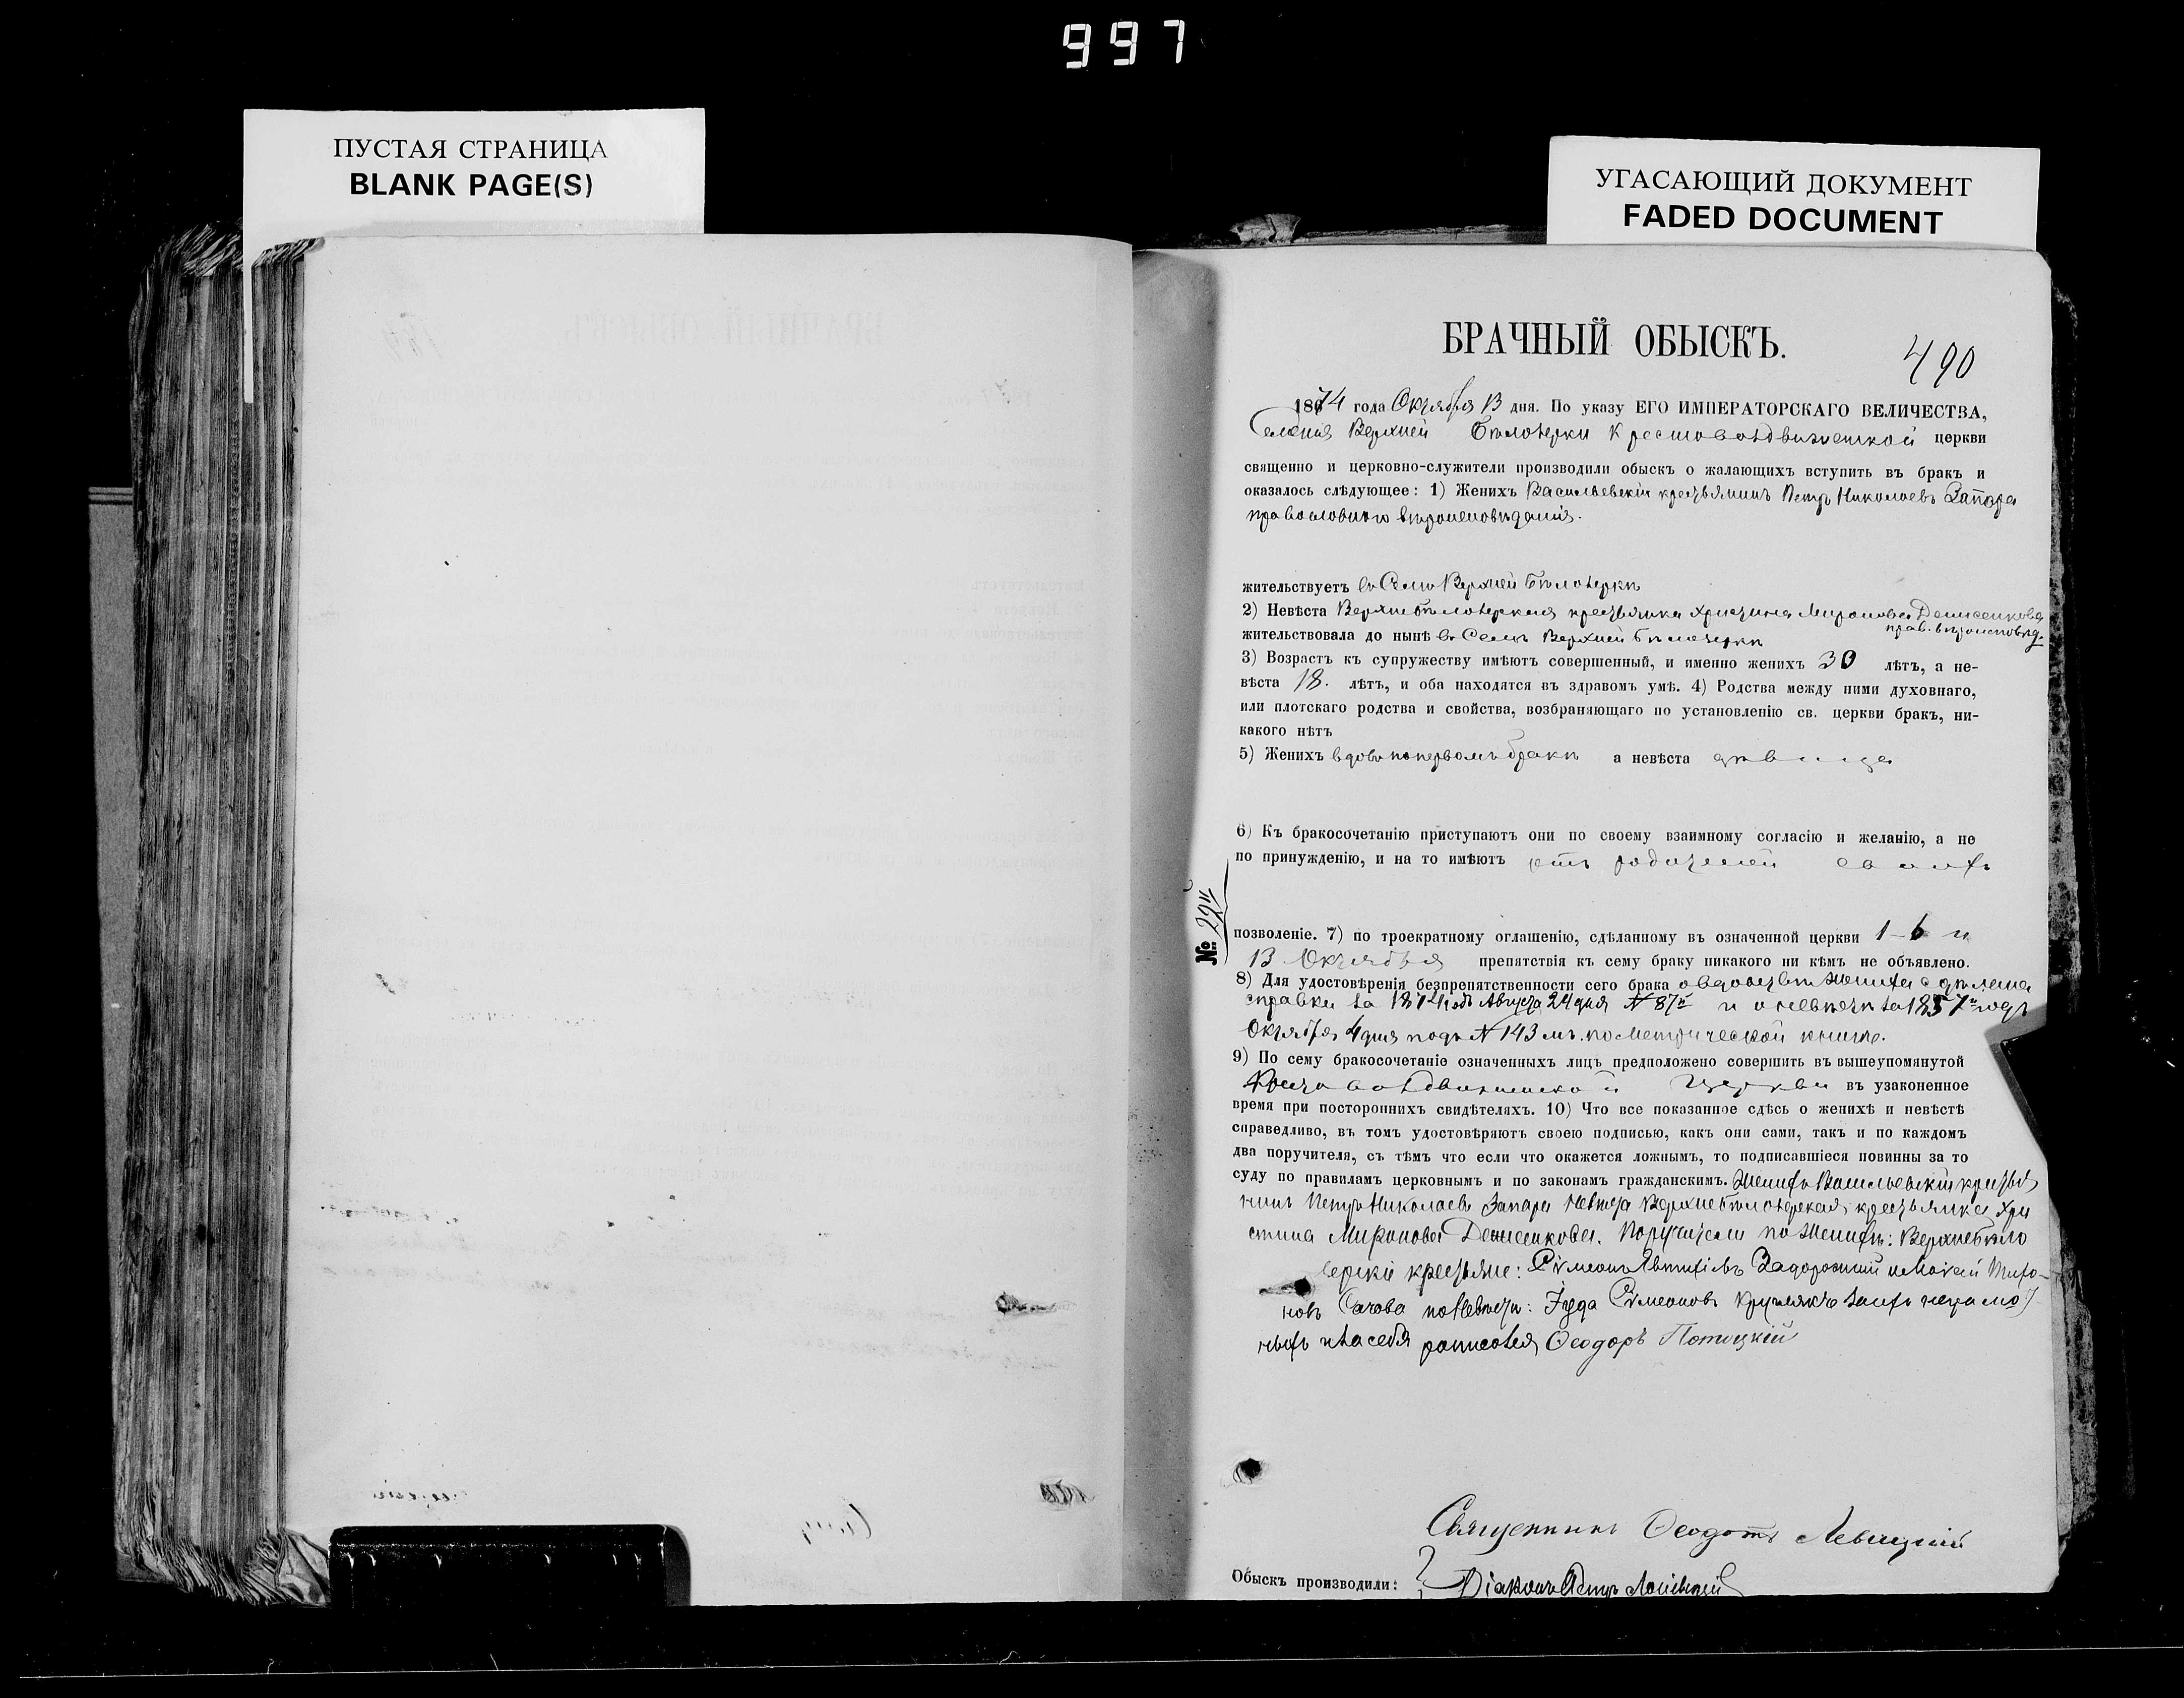 997
ПУСТАЯ СТРАНИЦА
BLANK PAGE(S)
УГАСАЮЩИЙ ДОКУМЕНТ
FADED DOCUMENT
БРАЧНЫЙ ОБЫСКЪ.
490
1874 года Октября 13 дня. По указу ЕГО ИМПЕРАТОРСКАГО ВЕЛИЧЕСТВА,
Селенія Верхней Бѣлозерки Крестовоздвиженской церкви
священно и церковно-служители производили обыскъ о жалающихъ вступить въ бракъ и
оказалось слѣдующее: 1) Женихъ Васильевскій крестьянинъ Петръ Николаевъ Запара
православнаго вѣроисповѣданія.
жительствуетъ въ Селѣ Верхней Бѣлозеркѣ
2) Невѣста Верхнебѣлозерская крестьянка Христина Миронова Денисенкова
прав. вѣроисповѣд.
жительствовала до нынѣ въ Селѣ Верхней Бѣлозеркѣ
3) Возрастъ къ супружеству имѣютъ совершенный, и именно женихъ 30 лѣтъ, а не-
вѣста 18. лѣтъ, и оба находятся въ здравомъ умѣ. 4) Родства между ними духовнаго,
или плотскаго родства и свойства, возбраняющаго по установленію св. церкви бракъ, ни-
какого нѣтъ
5) Женихъ вдовъ по первомъ бракѣ а невѣста дѣвица
6) Къ бракосочетанію приступаютъ они по своему взаимному согласію и желанію, а не
по принужденію, и на то имѣютъ отъ родителей своихъ
№ 22й
позволеніе. 7) по троекратному оглашенію, сдѣланному въ означенной церкви 1 6 и
13 Октября препятствія къ сему браку никакого ни кѣмъ не объявлено.
8) Для удостовѣренія безпрепятственности сего брака о вдовствѣ жениха сдѣлана
справка за 1874 годъ Августа 24 дня № 87й и о невѣстѣ за 1857й годъ
Октября 4 дня подъ № 143мъ. по метрической книгѣ.
9) По сему бракосочетаніе означенныхъ лицъ предположено совершить въ вышеупомянутой
Крестовоздвиженской Церкви въ узаконенное
время при постороннихъ свидѣтеляхъ. 10) Что все показанное сдѣсь о женихѣ и невѣстѣ
справедливо, въ томъ удостовѣряютъ своею подписью, какъ они сами, такъ и по каждомъ
два поручителя, съ тѣмъ что если что окажется ложнымъ, то подписавшіеся повинны за то
суду по правиламъ церковнымъ и по законамъ гражданскимъ. Женихъ Васильевскій крестья
нинъ Петръ Николаевъ Запара Невѣста Верхнебѣлозерская крестьянка Хри
стина Миронова Денисенкова. Поручители по Женихѣ: Верхнебѣло
зерскіе крестьяне: Сѵмеонъ Задорожній Тихо-
новъ по Невѣстѣ: Іуда Сѵмеоновъ за ихъ неграмот
ныхъ и за себя росписался Ѳеодоръ Потоцкій
Священникъ Ѳеодотъ Левицкій
Обыскъ производили: Діаконъ Петръ